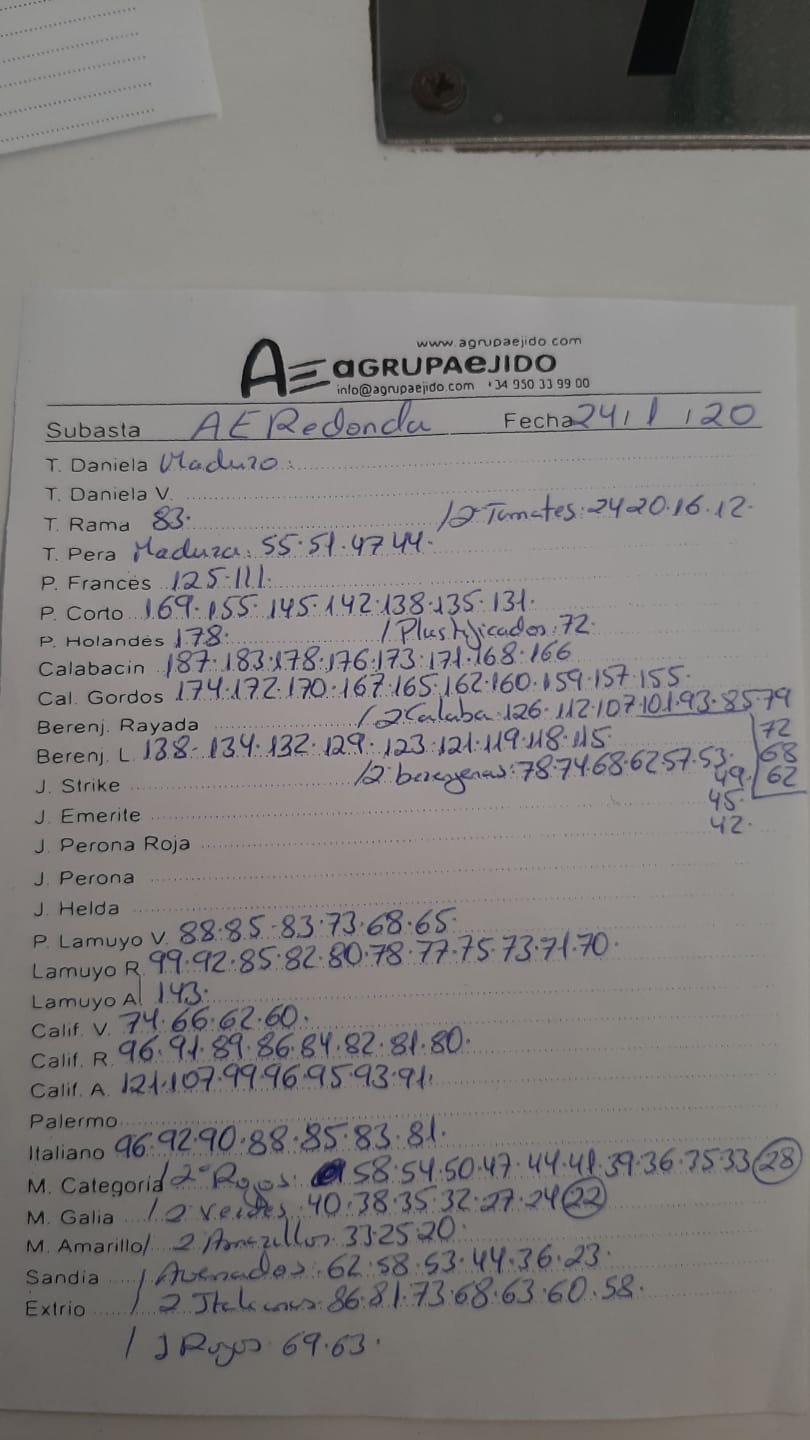 www.agrupaejido.com
AE aGRUPAeJIDO
info@agrupaejido.com +34 950 33 99 00
Subasta AE Redonda Fecha 24/1/20
T. Daniela Maduro:
T. Daniela V.
T. Rama 83. /2ª Tomates: 24 20. 16. 12.
T. Pera Madura: 55. 51. 47 44.
P. Francés 125. 111.
P. Corto 169. 155. 145. 142. 138. 135. 131.
P. Holandés 178. / Plastificados: 72.
Calabacin 187. 183. 178. 176. 173. 171. 168. 166
Cal. Gordos 174. 172. 170. 167. 165. 162. 160. 159. 157. 155.
Berenj. Rayada /2 Calaba: 126. 112. 107. 101. 93. 85 79
72
Berenj. L. 138. 134. 132. 129. 123. 121. 119. 118. 115
68
J. Strike /2 berenjenas: 78. 74. 68. 62 57. 53.
49. 62
45.
J. Emerite
42.
J. Perona Roja
J. Perona
J. Helda
P. Lamuyo V. 88. 85. 83. 73. 68. 65.
Lamuyo R 99. 92. 85. 82. 80. 78. 77. 75. 73. 71. 70.
Lamuyo A 143.
Calif. V. 74. 66. 62. 60.
Calif. R. 96. 91. 89. 86. 84. 82. 81. 80.
Calif. A. 121. 107. 99. 96. 95. 93. 91.
Palermo
Italiano 96. 92. 90. 88. 85. 83. 81.
M. Categoria /2ª Rojos: 58. 54. 50. 47. 44. 41. 39. 36. 35 33 28
M. Galia /2 Verdes: 40. 38. 35. 32. 27. 24 22
M. Amarillo / 2 Amarillos 33. 25. 20.
Sandia / Avenados: 62. 58. 53. 44. 36. 23.
Extrio / 2 Italianos: 86. 81. 73. 68. 63. 60. 58.
/ J Rojos 69. 63.